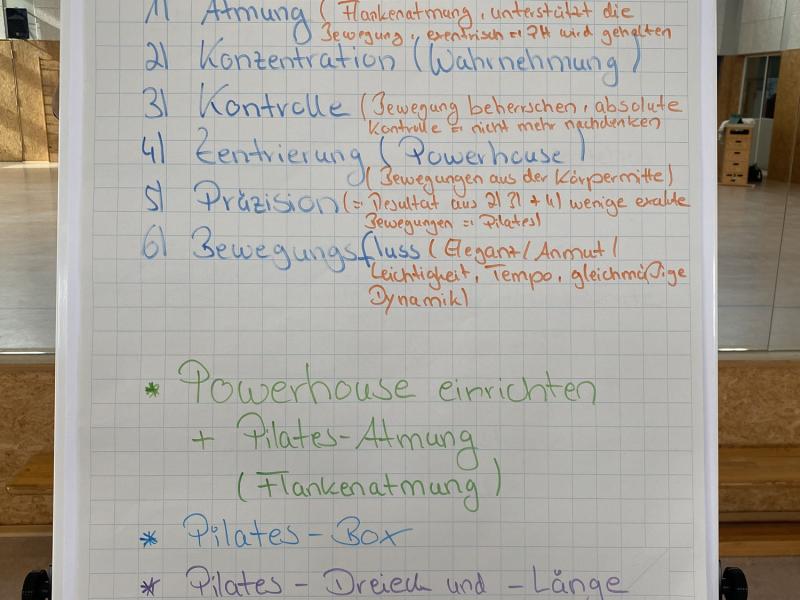 1) Atmung (Flankenatmung, unterstützt die
Bewegung, exentrisch = PH wird gehalten
2) Konzentration (Wahrnehmung)
3) Kontrolle (Bewegung beherrschen, absolute
Kontrolle = nicht mehr nachdenken
4) Zentrierung (Powerhouse)
(Bewegungen aus der Körpermitte)
5) Präzision (= Resultat aus 2) 3) + 4) wenige exakte
Bewegungen = Pilates)
6) Bewegungsfluss (Eleganz/Anmut/
Leichtigkeit, Tempo, gleichmäßige
Dynamik)
* Powerhouse einrichten
+ Pilates-Atmung
(Flankenatmung)
* Pilates-Box
* Pilates-Dreieck und -Länge